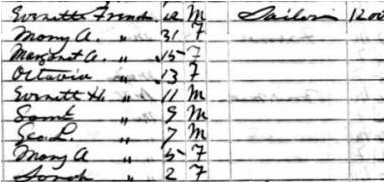 Everette French 42 M Sailor 1200
Mary A. " 31 F
Margaret A. " 15 F
Octavia " 13 F
Everett H. " 11 M
Saml " 9 M
Geo. L. " 7 M
Mary A " 5 F
Sarah " 2 F